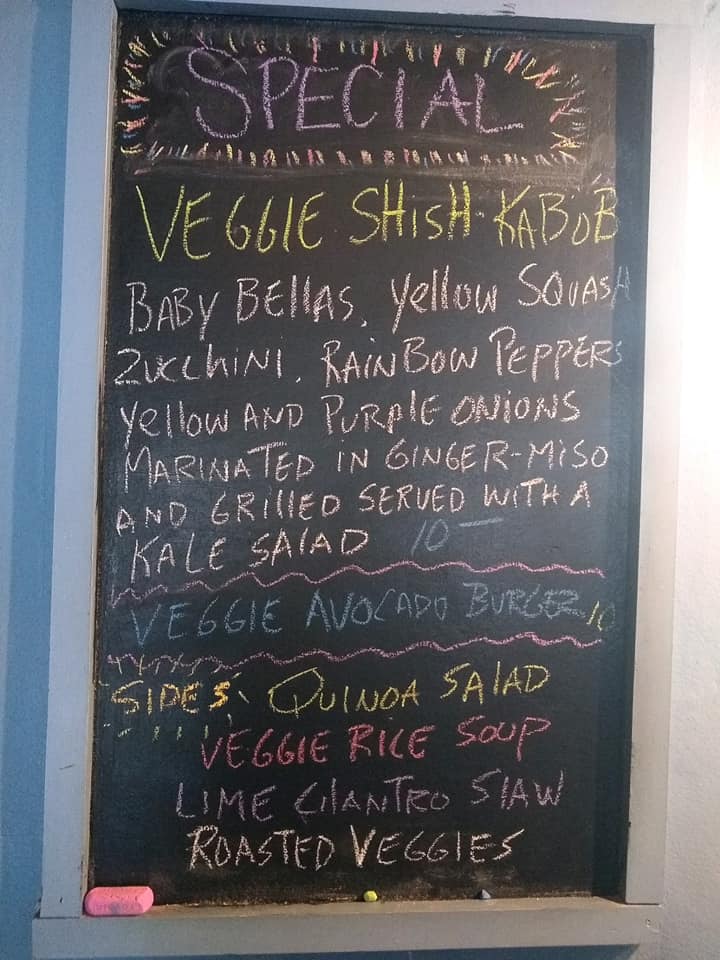 SPECIAL
VEGGIE SHISH KABOB
BABY BELLAS, Yellow SQUASH
Zucchini, RAINBOW PEPPERS
Yellow AND PURPLE ONIONS
MARINATED IN GINGER-MISO
AND GRILLED SERVED WITH A
KALE SALAD 10—
VEGGIE AVOCADO BURGER 10
SIDES: QUINOA SALAD
VEGGIE RICE SOUP
LIME CILANTRO SLAW
ROASTED VEGGIES